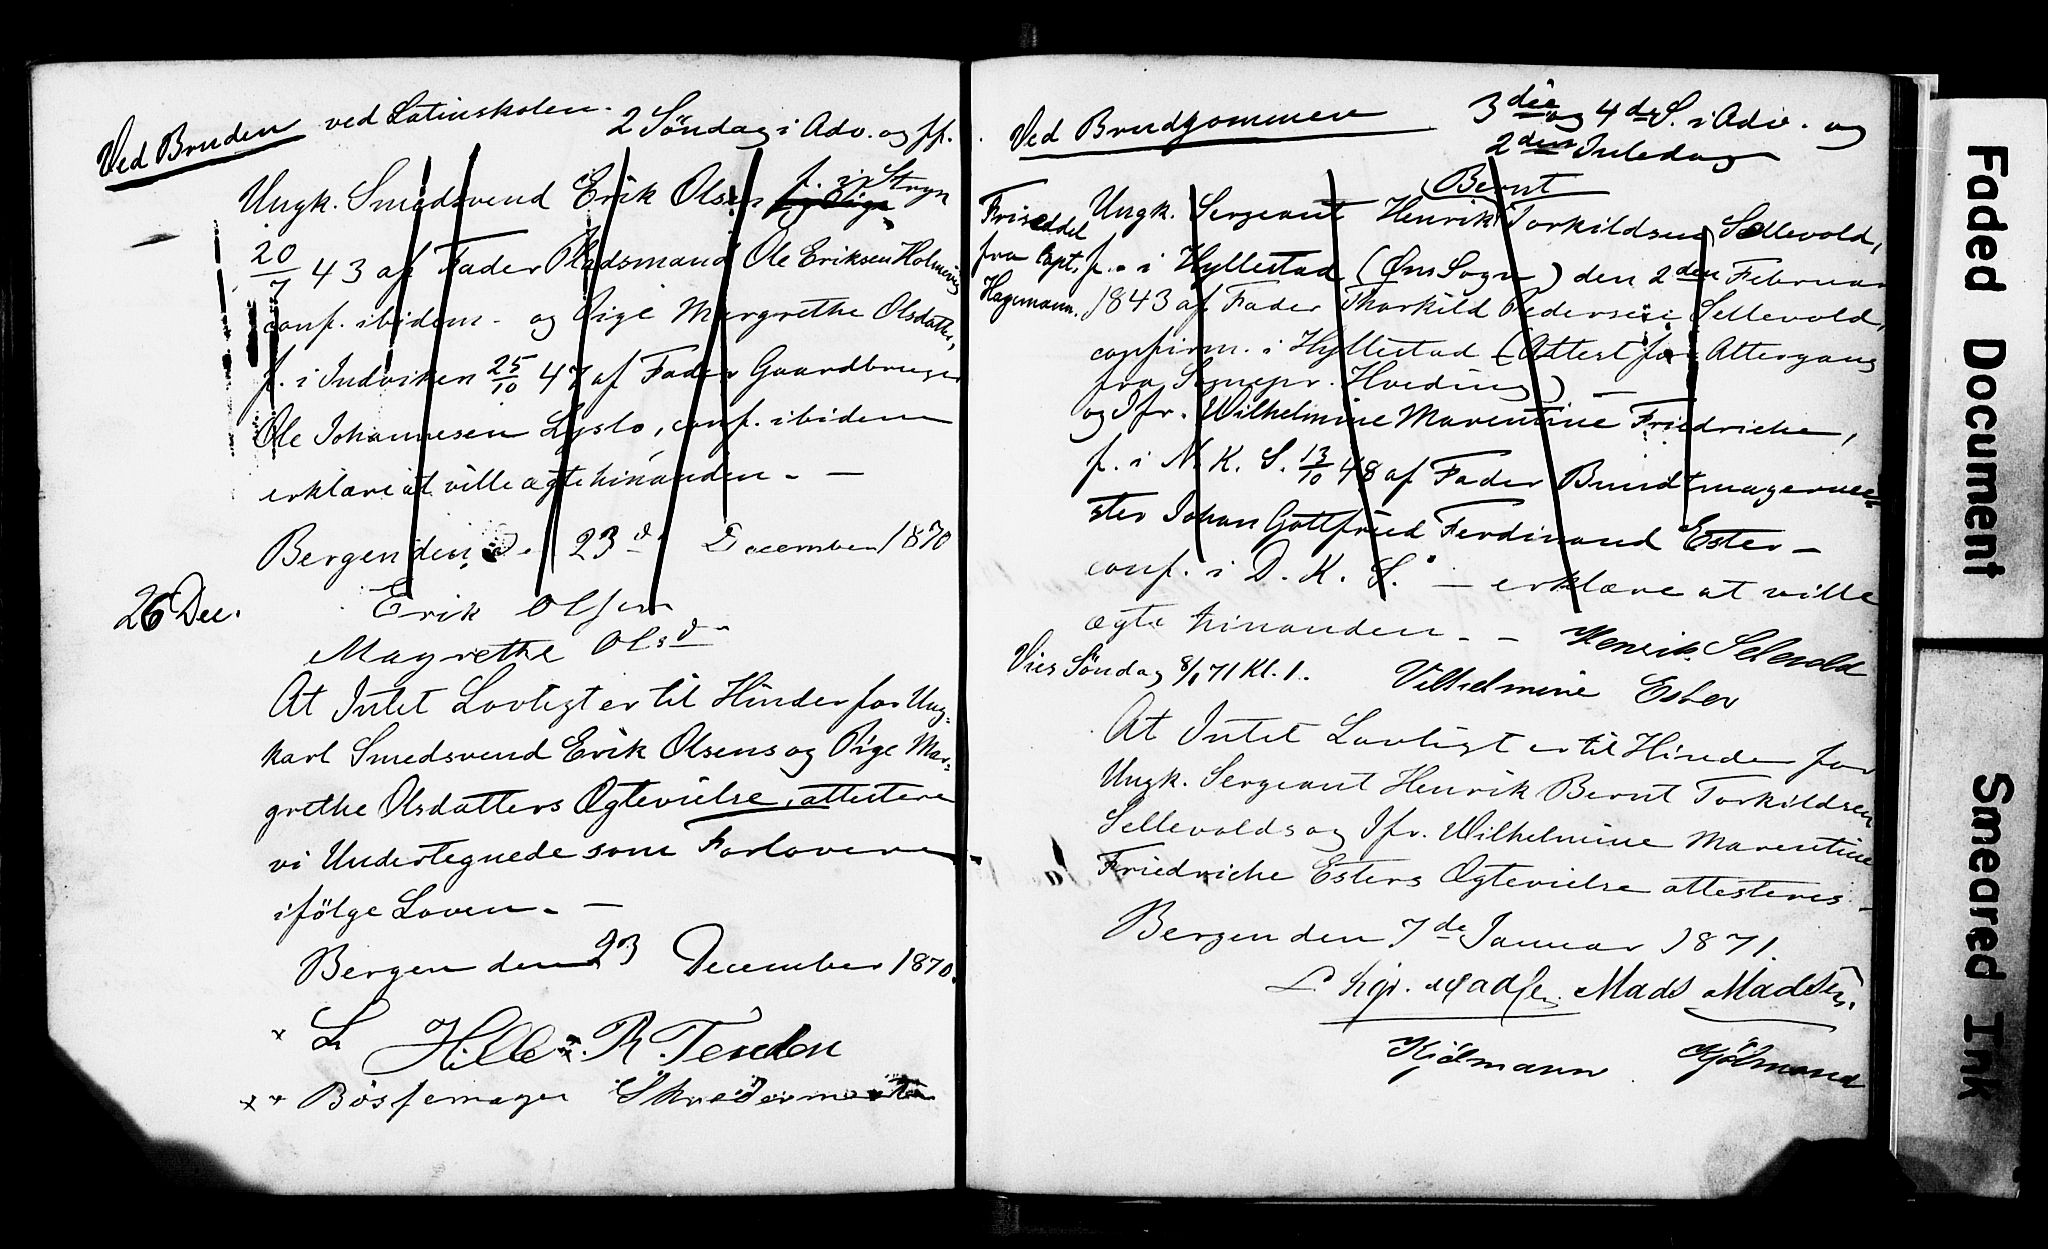 Ved Bruden ved Latinskolen. 2 Søndag i Adv. og ff.
Ungk. Smedsvend Erik Olsen f. i Stryn
20/7 43 af Fader Pladsmand Ole Eriksen Holmevig
conf. ibidem. og Pige Margrethe Olsdatter,
f. i Indviken 25/10 47 af Fader Gaardbruger
Ole Johannesen Lyslo, conf. ibidem
erklære at ville ægte hinanden. —
Bergen den 23 d. December 1870
26 Dec.
Erik Olsen
Magrethe Olsd
At Intet Lovligt er til Hinder for Ung-
karl Smedsvend Erik Olsens og Pige Mar-
grethe Olsdatters Ægtevielse, attestere
vi Undertegnede som Forlovere
ifölge Loven. —
Bergen den 23 December 1870.
L. Hille R. Tenden
Bössemager Skredermester
Ved Brudgommen 3die og 4de S. i Adv. og
2den Juledag
Friseddel
fra Capt.
Hagemann.
Bernt
Ungk. Sergeant Henrik Torkildsen Sellevold,
f. i Hyllestad (Øns Sogn) den 2den Februar
1843 af Fader Thorkild Pedersen Sellevold,
confirm. i Hyllestad (Attest for Altergang
fra Sognepr. Hvoeding) —
og Jfr. Wilhelmine Marentine Friedriche,
f. i N. K. S. 13/10 48 af Fader Bundtmagerme-
ster Johan Gottfried Ferdinand Ester —
conf. i D. K. S. — erklære at ville
ægte hinanden. — Henrik Selevold
Vies Søndag 8/1 71 Kl. 1. Vilhelmine Ester
At Intet Lovligt er til Hinder for
Ungk. Sergeant Henrik Bernt Torkildsen
Sellevolds og Jfr. Wilhelmine Marentine
Friedriche Esters Ægtevielse attesteres.
Bergen den 7de Januar 1871.
Madsen. Mads Madsen.
Kjölmann Kjölmand
Faded Document
Smeared Ink